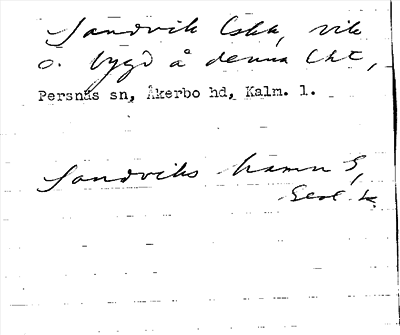 Sandvik Cska, vik
o. bygd å denna Cht,
Persnäs sn, Åkerbo hd, Kalm. l.
Sandviks hamn G,
Geol. k.